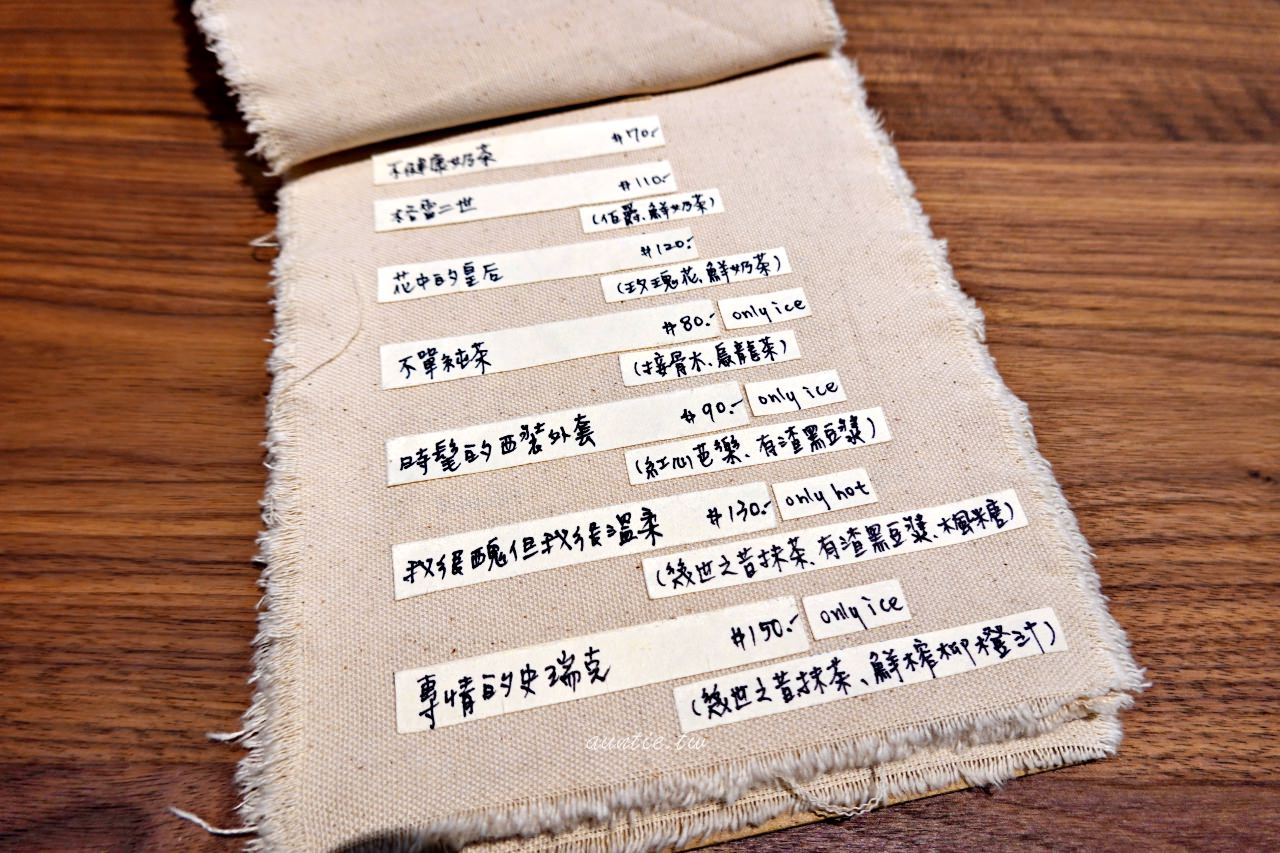 不健康奶茶 $70.-
格雷二世 $110.-
(伯爵、鮮奶茶)
花中的皇后 $120.-
(玫瑰花、鮮奶茶)
不單純茶 $80.- only ice
(接骨木、烏龍茶)
時髦的西裝外套 $90.- only ice
(紅心芭樂、有渣黑豆漿)
我很醜但我很溫柔 $130.- only hot
(幾世之昔抹茶、有渣黑豆漿、楓糖)
專情的史瑞克 $150.- only ice
(幾世之昔抹茶、鮮榨柳橙汁)
auntie.tw